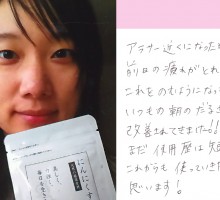 アラサー近くになった
前日の疲れがとれ
これをのむようになっ
いつもの朝のだるさ
改善されてきました!!
まだ併用歴は短
これからも使っていきた
思います!
にんにくす